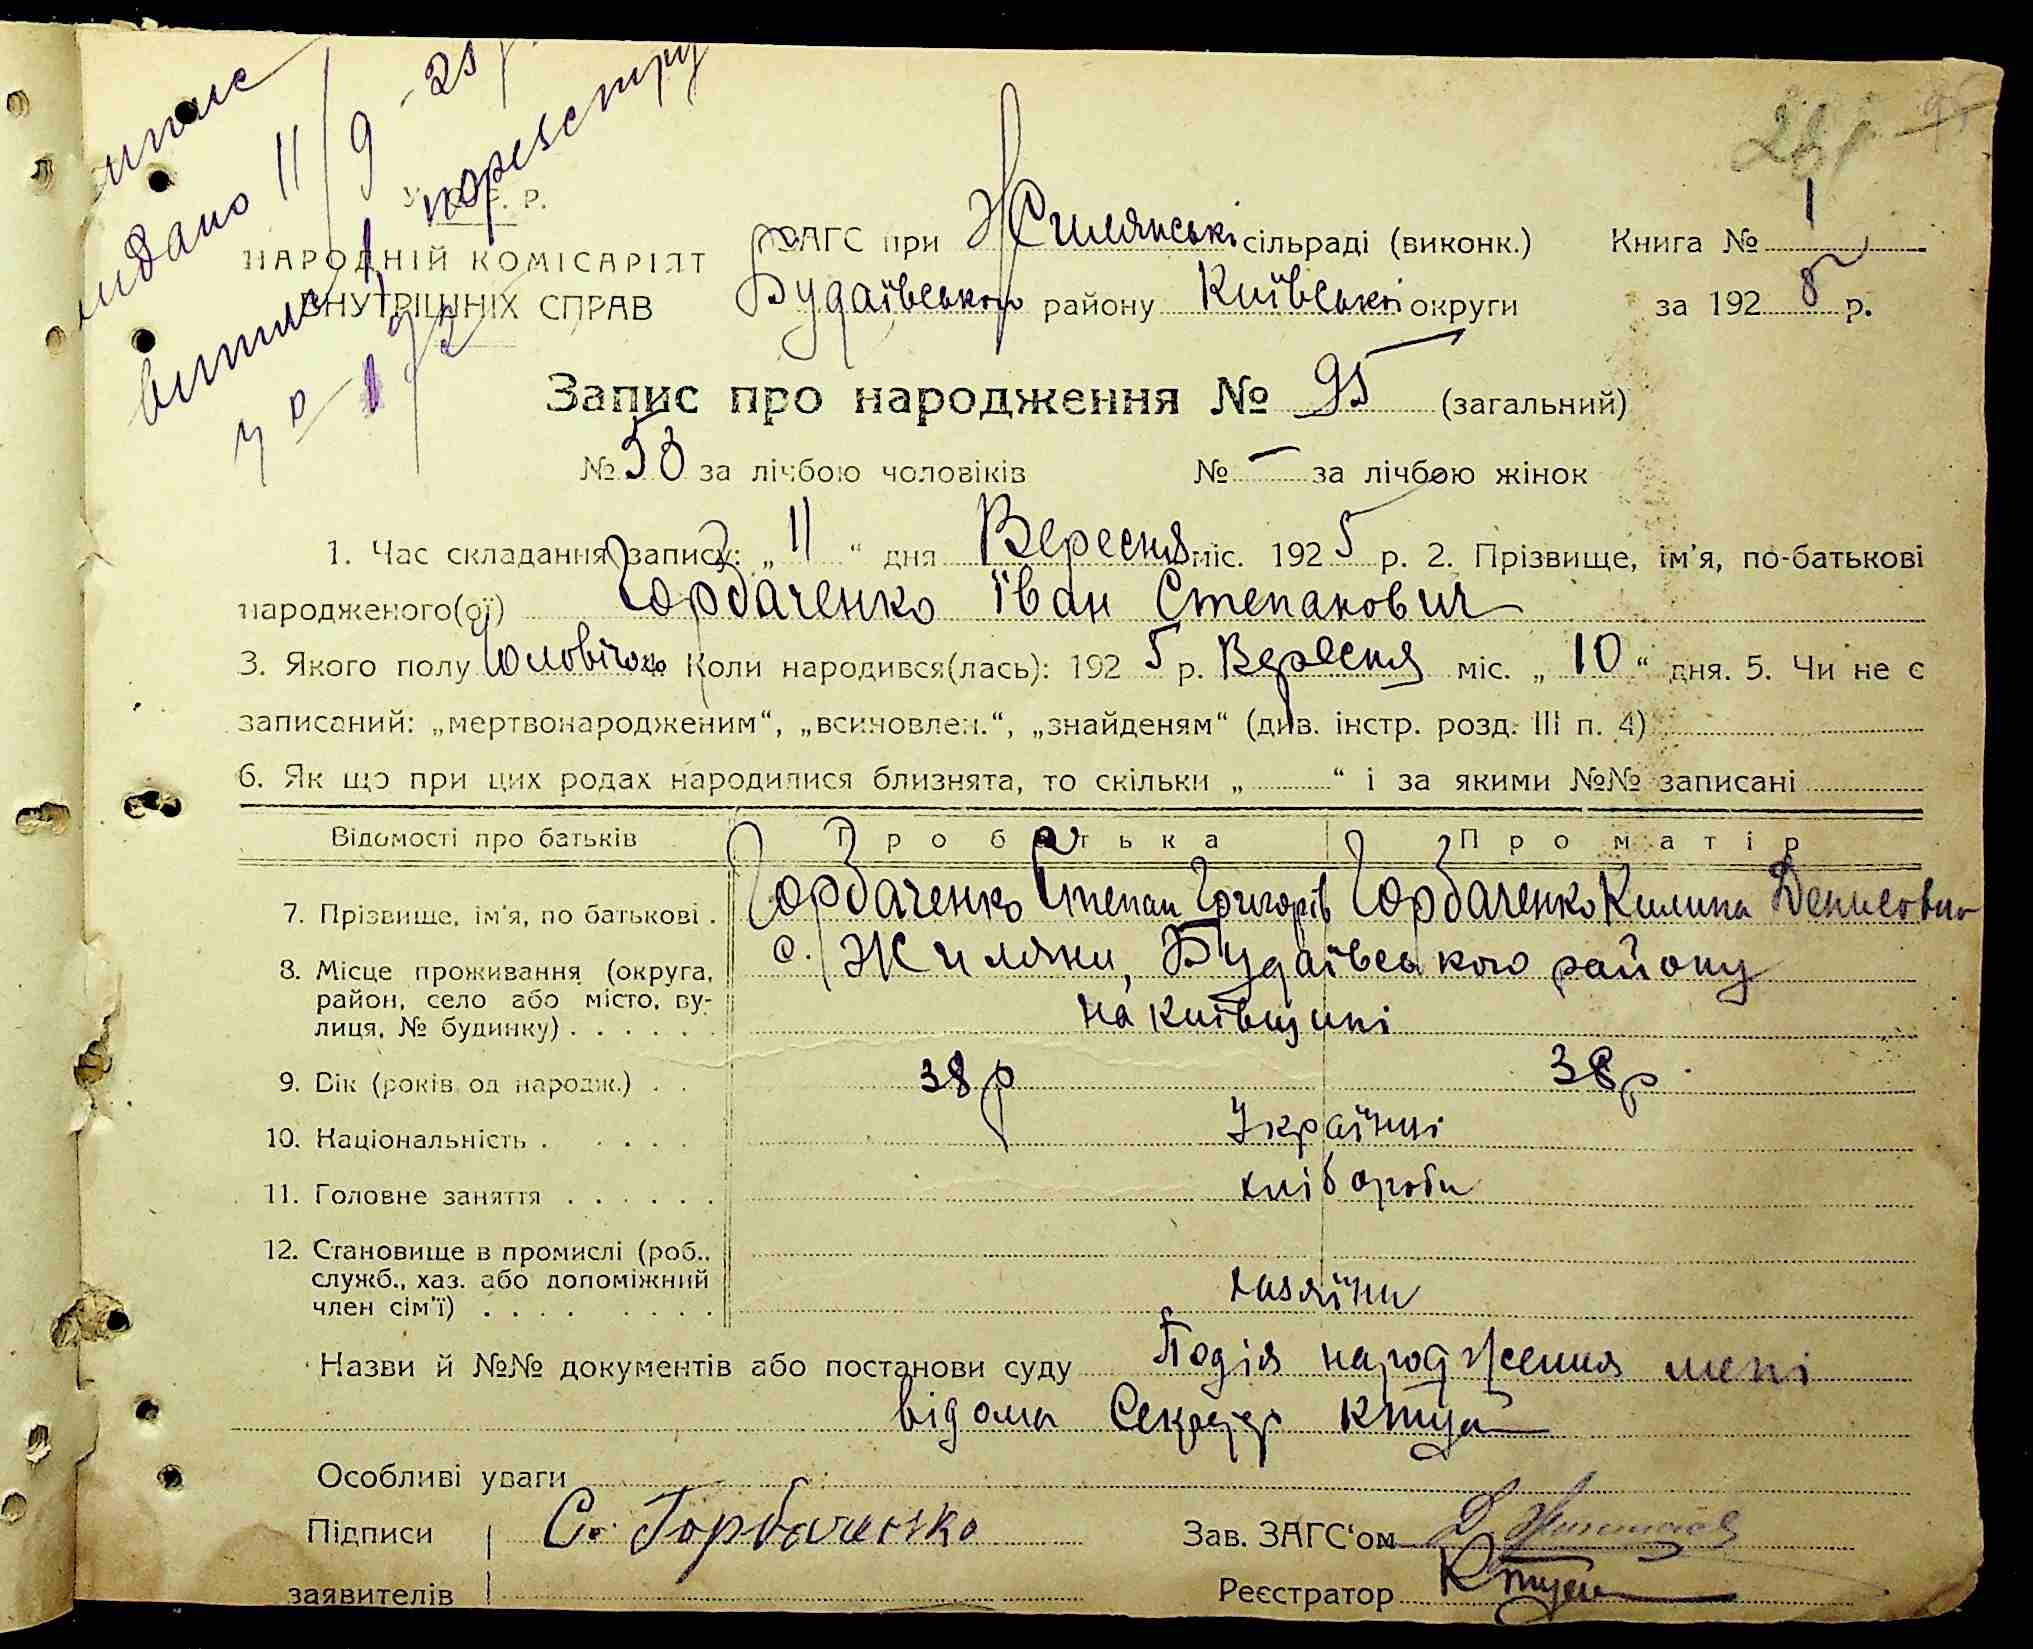 видано 11/9-25 р.
У. С. Р. Р.
НАРОДНІЙ КОМІСАРІЯТ
ВНУТРІШНІХ СПРАВ
ЗАГС при Жилянській сільраді (виконк.) Книга № 1
Будаївського району Київської округи за 1925 р.
Запис про народження № 95 (загальний)
№ 53 за лічбою чоловіків № — за лічбою жінок
1. Час складання запису: „11“ дня Вересня міс. 1925 р. 2. Прізвище, ім'я, по-батькові
народженого(ої) Горбаченко Іван Степанович
3. Якого полу Коли народився(лась): 1925 р. Вересня міс. „10“ дня. 5. Чи не є
записаний: „мертвонародженим“, „всиновлен.“, „знайденям“ (див. інстр. розд. III п. 4)
6. Як що при цих родах народилися близнята, то скільки „ “ і за якими №№ записані
Відомості про батьків Про батька Про матір
7. Прізвище, ім'я, по батькові . Горбаченко Степан Григорів Горбаченко Килина Денисовна
8. Місце проживання (округа, с. Жиляни, Будаївського району
район, село або місто, ву-
лиця, № будинку) . . . . . . на Київщині
9. Вік (років од народж.) . . 38 р 38 р.
10. Національність . . . . . . Українці
11. Головне заняття . . . . . . хлібороби
12. Становище в промислі (роб.,
служб., хаз. або допоміжний
член сім'ї) . . . . . . . . хазяїни
Назви й №№ документів або постанови суду Подія народження мені
відома Секретар
Особливі уваги
Підписи С. Горбаченко Зав. ЗАГС'ом
заявителів Реєстратор